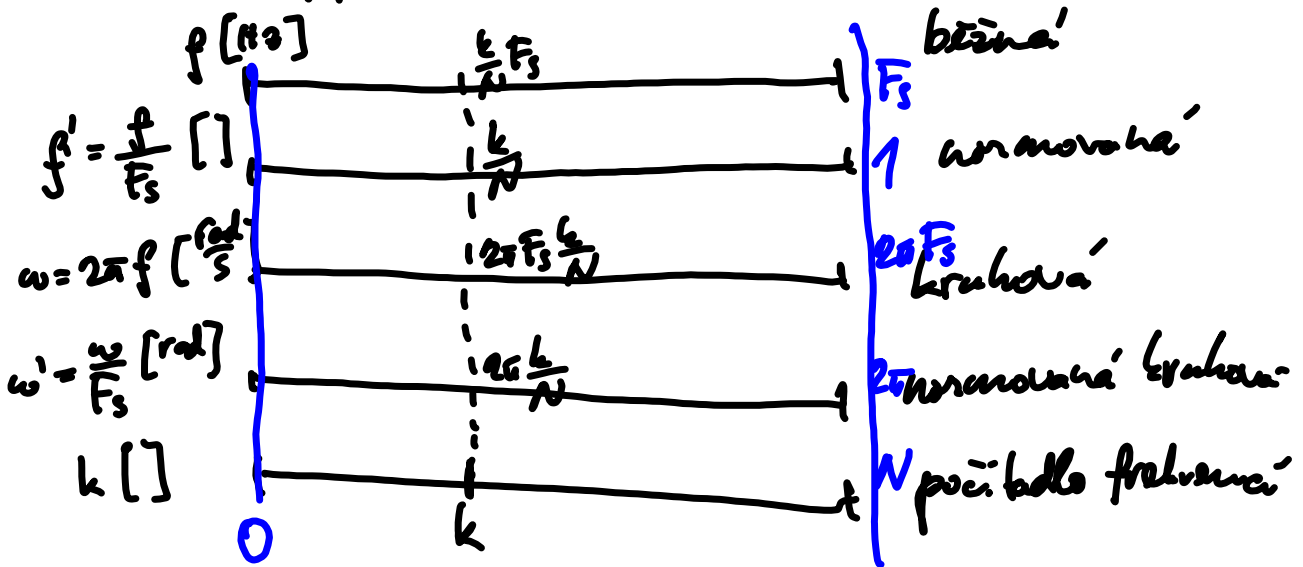 f [Hz] k/N Fs Fs běžná
f' = f/Fs [] k/N 1 normovaná
ω = 2π f [rad/s] 2π Fs k/N 2π Fs kruhová
ω' = ω/Fs [rad] 2π k/N 2π normovaná kruhová
k [] N počítadlo frekvencí
0 k